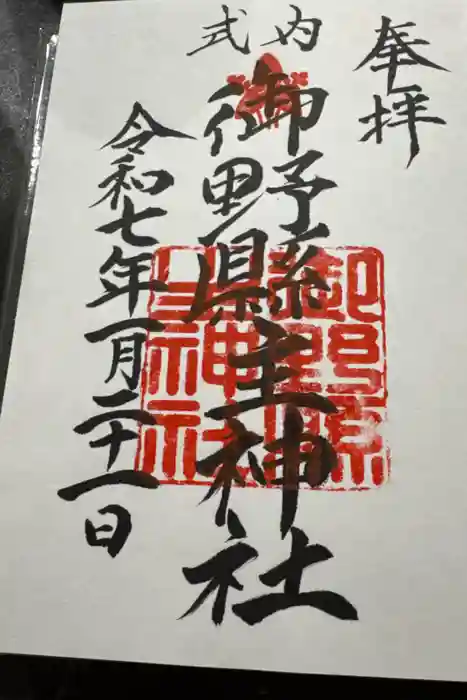 奉拝
式内
御野縣主神社
令和七年一月二十一日
御野縣
主神社